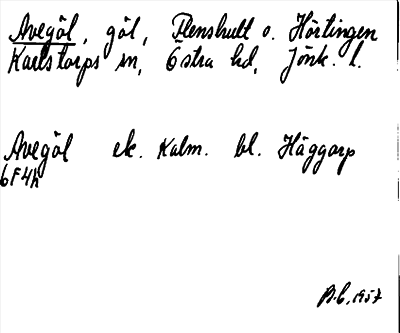 Avegöl, göl, Flenshult o. Hörlingen
Karlstorps sn, Östra hd, Jönk. l.
Avegöl ek. Kalm. bl. Häggarp
6F4h
1957